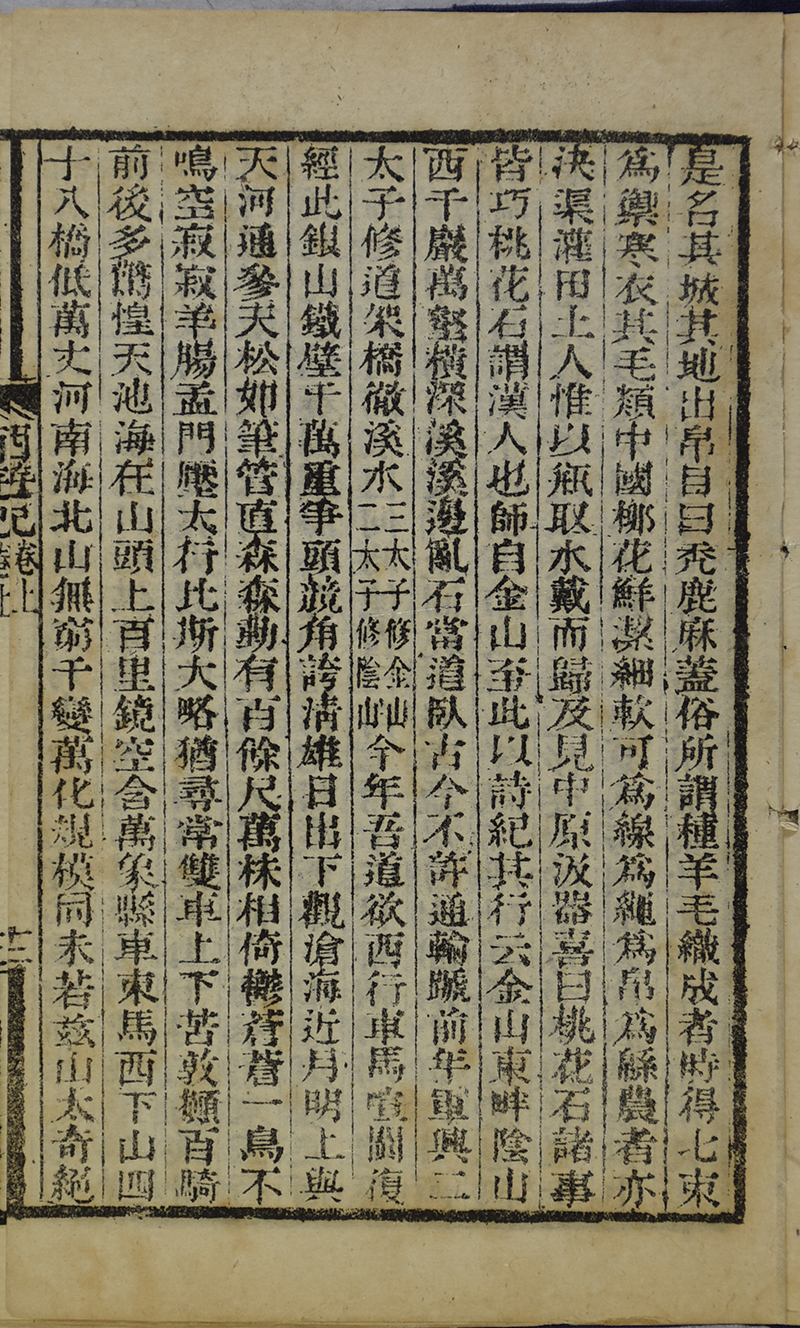 是名其城其地出帛目曰禿鹿麻蓋俗所謂種羊毛織成者時得七束
爲禦寒衣其毛類中國柳花鮮潔細軟可爲線爲繩爲帛爲緜農者亦
決渠灌田土人惟以瓶取水戴而歸及見中原汲器喜曰桃花石諸事
皆巧桃花石謂漢人也師自金山至此以詩紀其行云金山東畔陰山
西千巖萬壑橫深溪溪邊亂石當道臥古今不許通輪蹏前年軍興二
太子修道架橋徹溪水三太子修金山二太子修陰山今年吾道欲西行車馬喧闐復
經此銀山鐵壁千萬重爭頭競角誇清雄日出下觀滄海近月明上與
天河通參天松如筆管直森森動有百餘尺萬株相倚鬱蒼蒼一鳥不
鳴空寂寂羊腸孟門壓太行比斯大略猶尋常雙車上下苦敦攧百騎
前後多驚惶天池海在山頭上百里鏡空含萬象縣車束馬西下山四
十八橋低萬丈河南海北山無窮千變萬化規模同未若茲山太奇絕
西遊記卷上